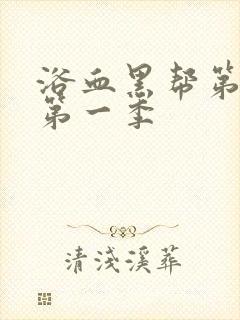 浴血黑帮第
第一季
清浅溪葬